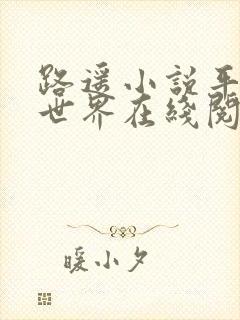 路遥小说平
世界在线阅
暖小夕